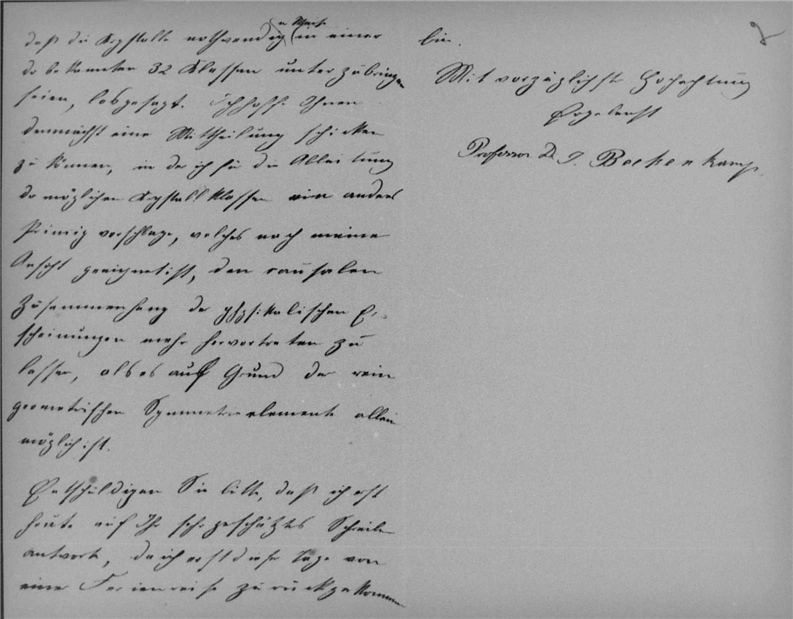 daß die Krystalle nothwendig in einer
der bekannten 32 Klassen unterzubringen
seien, losgesagt. Ich hoffe Ihnen
demnächst eine Mittheilung schicken
zu können, in der ich für die Ableitung
der möglichen Krystallklassen ein anderes
Prinzip vorschlage, welches nach meiner
Ansicht geeignet ist, den causalen
Zusammenhang der physikalischen Er-
scheinungen mehr hervortreten zu
lassen, als es auf Grund der rein
geometrischen Symmetrieelemente allein
möglich ist.
Entschuldigen Sie bitte, daß ich erst
heute auf Ihr sehr geschätztes Schreiben
antworte, da ich erst dieser Tage von
einer Ferienreise zurückgekommen
bin.
Mit vorzüglichster Hochachtung
Ergebenst
Professor Dr. J. Beckenkamp.